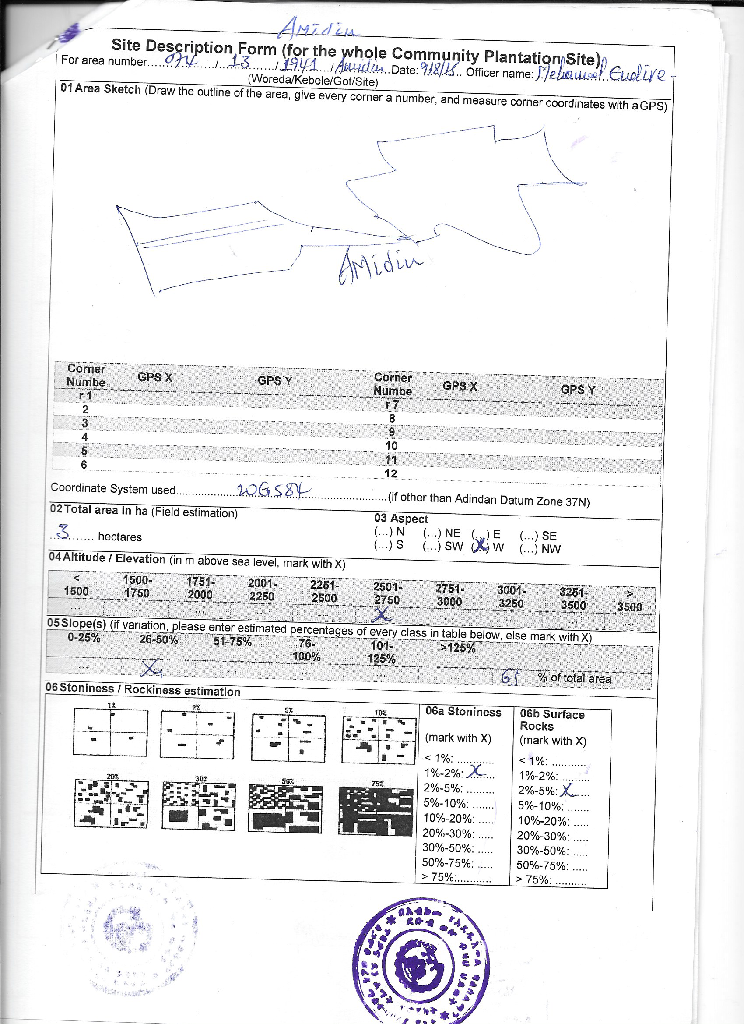 Amidin
Site Description Form (for the whole Community Plantation Site)
For area number.....074....../..13....../..1941../Amidin..Date: 9/8/15.. Officer name:
(Woreda/Kebele/Got/Site)
01 Area Sketch (Draw the outline of the area, give every corner a number, and measure corner coordinates with a GPS)
AMidin
Corner Numbe GPS X GPS Y Corner Numbe GPS X GPS Y
r 1 r 7
2 8
3 9
4 10
5 11
6 12
Coordinate System used..........WGS84..........(if other than Adindan Datum Zone 37N)
02 Total area in ha (Field estimation) 03 Aspect
..3....... hectares (...) N (...) NE (...) E (...) SE
(...) S (...) SW (X) W (...) NW
04 Altitude / Elevation (in m above sea level, mark with X)
< 1500 1500-1750 1751-2000 2001-2250 2251-2500 2501-2750 2751-3000 3001-3250 3251-3500 > 3500
X
05 Slope(s) (if variation, please enter estimated percentages of every class in table below, else mark with X)
0-25% 26-50% 51-75% 76-100% 101-125% >125%
X 61 % of total area
06 Stoniness / Rockiness estimation
1% 2% 5% 10%
20% 30% 50% 75%
06a Stoniness
(mark with X)
< 1%: ..........
1%-2%: X...
2%-5%: .........
5%-10%: .......
10%-20%: .....
20%-30%: .....
30%-50%: .....
50%-75%: .....
> 75%:............
06b Surface Rocks
(mark with X)
< 1%: ...........
1%-2%: .........
2%-5%: X
5%-10%: .......
10%-20%: .....
20%-30%: .....
30%-50%: .....
50%-75%: .....
> 75%: ..........